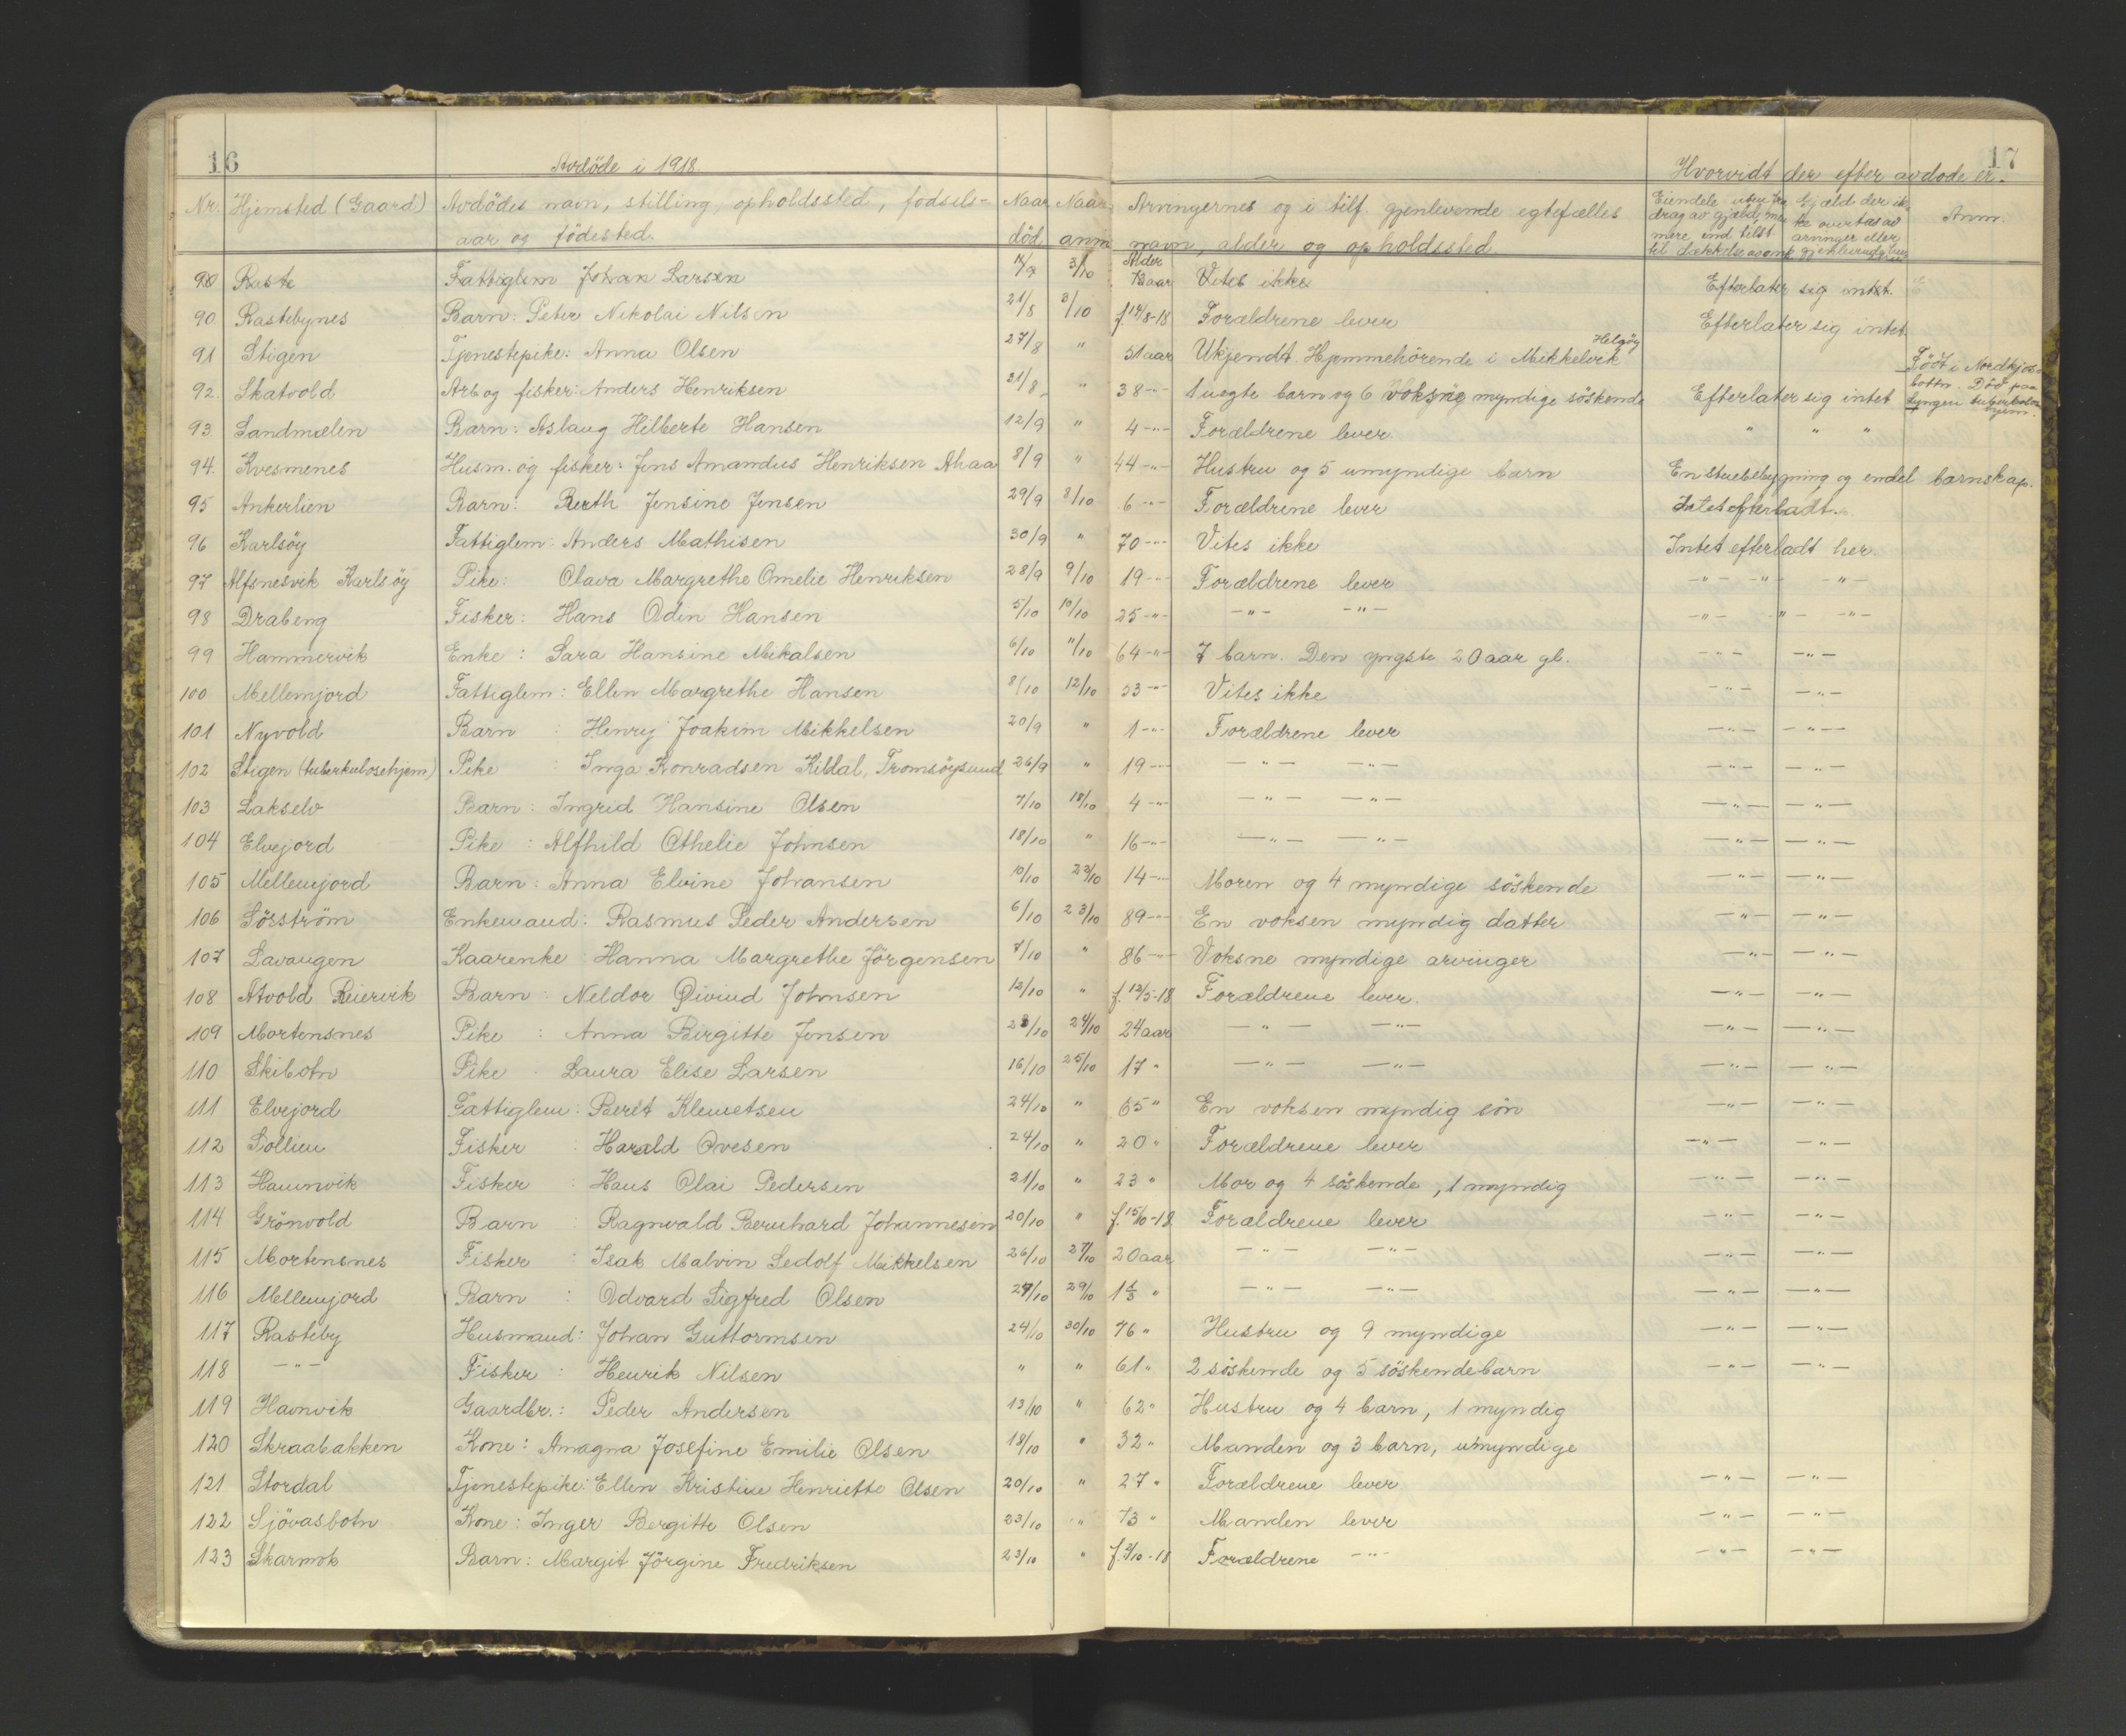 16
Avdöde i 1918.
17
Hvorvidt der efter avdöde er.
Nr. Hjemsted (Gaard) Avdödes navn, stilling, opholdssted, födsels- Naar Naar Arvingernes og i tilf. gjenlevende egtefælles Anm.
aar og födested. död anm navn, alder og opholdssted.
Raste Fattiglem Johan Larsen 3/10 Alder Vites ikke Efterlater sig intet.
90 Rastebynes Barn: Peter Nikolai Nilsen 21/8 3/10 f.14/8-18 Forældrene lever Efterlater sig intet
91 Stigen Tjenestepike: Anna Olsen 27/8 " 51 aar Ukjendt. Hjemmehörende i Mikkelvik Helgöy
92. Skatvold Arb og fisker: Anders Henriksen 21/8 " 38 -"- 1 uegte barn og 6 voksne myndige söskende Efterlater sig intet Födt i Nordkjosbottn. Död paa Lyngen tuberkulosehjem.
93 Sandmælen Barn: Aslaug Hilberte Hansen 12/9 " 4 -"- Forældrene lever. " " "
94. Kvesmenes Husm. og fisker: Jens Amandus Henriksen Ahaa 8/9 " 44 -"- Hustru og 5 umyndige barn En stuebebygning og endel barnskap.
95 Ankerlien Barn: Berth Jensine Jensen 29/9 8/10 6 -"- Forældrene lever Intet efterladt.
96 Karlsöy Fattiglem: Anders Mathisen 30/9 " 70 -"- Vites ikke Intet efterladt her.
97 Alfsnesvik Karlsöy Pike: Olava Margrethe Omelie Henriksen 28/9 9/10 19 -"- Forældrene lever -"- -"- -"-
98 Drabeng Fisker: Hans Odin Hansen 5/10 10/10 25 -"- -"- -"- -"- -"- -"-
99 Hammervik Enke: Sara Hansine Mikalsen 6/10 11/10 64 -"- 7 barn. Den yngste 20 aar gl. -"- -"-
100 Mellemjord Fattiglem: Ellen Margrethe Hansen 8/10 12/10 53 -"- Vites ikke -"- -"-
101 Nyvold Barn : Henry Joakim Mikkelsen 20/9 " 1 -"- Forældrene lever -"- -"-
102 Stigen (tuberkulosehjem) Pike : Inga Konradsen Kildal, Tromsöysund 26/9 " 19 -"- -"- -"- -"- -"-
103 Lakselv Barn: Ingrid Hansine Olsen 7/10 18/10 4 -"- -"- -"- -"- -"-
104 Elvejord Pike : Alfhild Othelie Johnsen 18/10 " 16 -"- -"- -"- -"- -"-
105 Mellemjord Barn: Anna Elvine Johansen 10/10 23/10 14 -"- Moren og 4 myndige söskende -"- -"-
106 Sörström Enkemand: Rasmus Peder Andersen 6/10 23/10 89 -"- En voksen myndig datter -"- -"-
107 Lavangen Kaarenke Hanna Margrethe Jörgensen 7/10 " 86 -"- Voksne myndige arvinger -"- -"-
108 Atvold Reiervik Barn : Neldor Öivind Johnsen 12/10 " f.12/5-18 Forældrene lever. -"- -"-
109 Mortensnes Pike : Anna Birgitte Jensen 23/10 24/10 24 aar -"- -"- -"- -"-
110 Skibotn Pike : Laura Elise Larsen 16/10 25/10 17 " -"- -"- -"- -"-
111 Elvejord Fattiglem: Berit Klemetsen 24/10 " 65 " En voksen myndig sön -"- -"-
112 Sollien Fisker : Harald Ovesen 24/10 " 20 " Forældrene lever -"- -"-
113 Havnvik Fisker : Hans Olai Pedersen 21/10 " 23 " Mor og 4 söskende, 1 myndig -"- -"-
114 Grönvold Barn : Ragnvald Bernhard Johannesen 20/10 " f.15/10-18 Forældrene lever -"- -"-
115 Mortensnes Fisker : Isak Malvin Sedolf Mikkelsen 26/10 27/10 20 aar -"- -"- -"- -"-
116 Mellemjord Barn : Odvard Sigfred Olsen 27/10 29/10 1 1/3 " -"- -"- -"- -"-
117 Rasteby Husmand: Johan Guttormsen 24/10 30/10 76 " Hustru og 9 myndige -"- -"-
118 -"- Fisker : Henrik Nilsen " " 61 " 2 söskende og 5 söskendebarn -"- -"-
119 Havnvik Gaardbr.: Peder Andersen 13/10 " 62 " Hustru og 4 barn, 1 myndig
120 Skraabakken Kone: Amagna Josefine Emilie Olsen 18/10 " 32 " Manden og 3 barn, umyndige
121 Stordal Tjenestepike: Ellen Kristine Henriette Olsen 20/10 " 27 " Forældrene lever -"- -"-
122 Sjövasbotn Kone: Inger Bergitte Olsen 23/10 " 73 " Manden lever -"- -"-
123 Skarmok Barn: Margit Jörgine Fredriksen 23/10 " f.2/10-18 Forældrene -"- -"- -"-